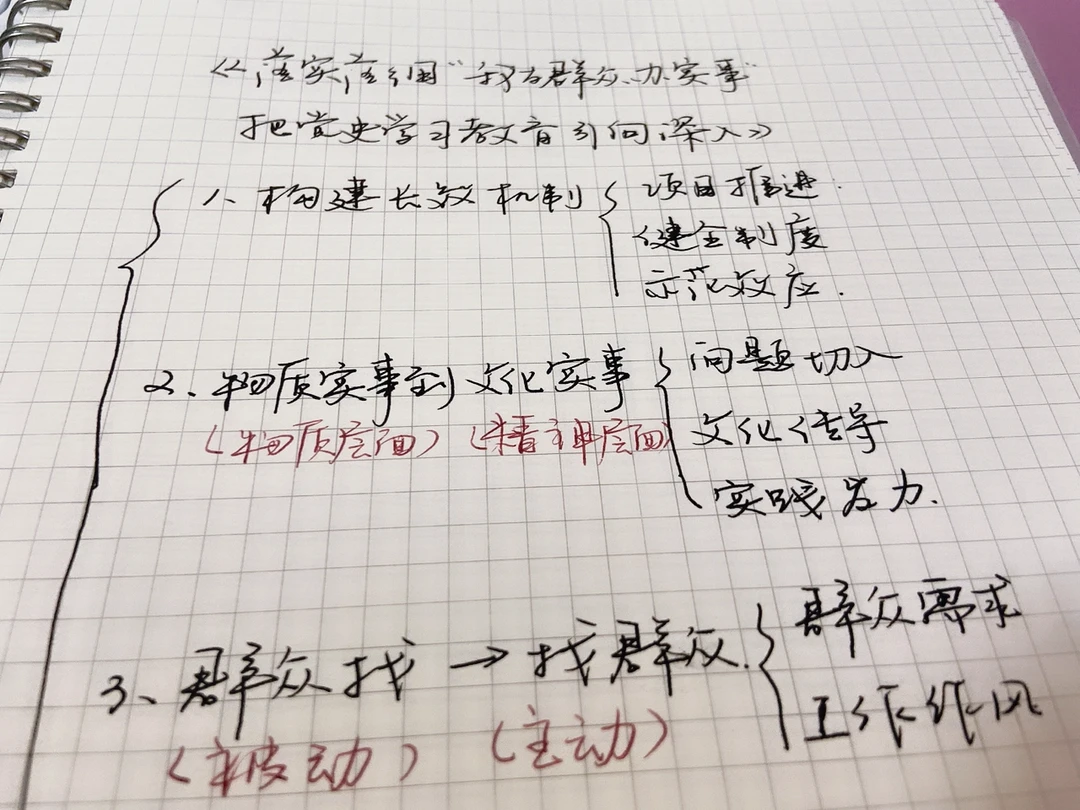 《落实落细“我为群众办实事”
把党史学习教育引向深入》
1、构建长效机制
项目推进
健全制度
示范效应.
2、物质实事到文化实事
(物质层面) (精神层面)
问题切入
文化传导
实践发力.
3、群众找→找群众.
(被动) (主动)
群众需求
工作作风